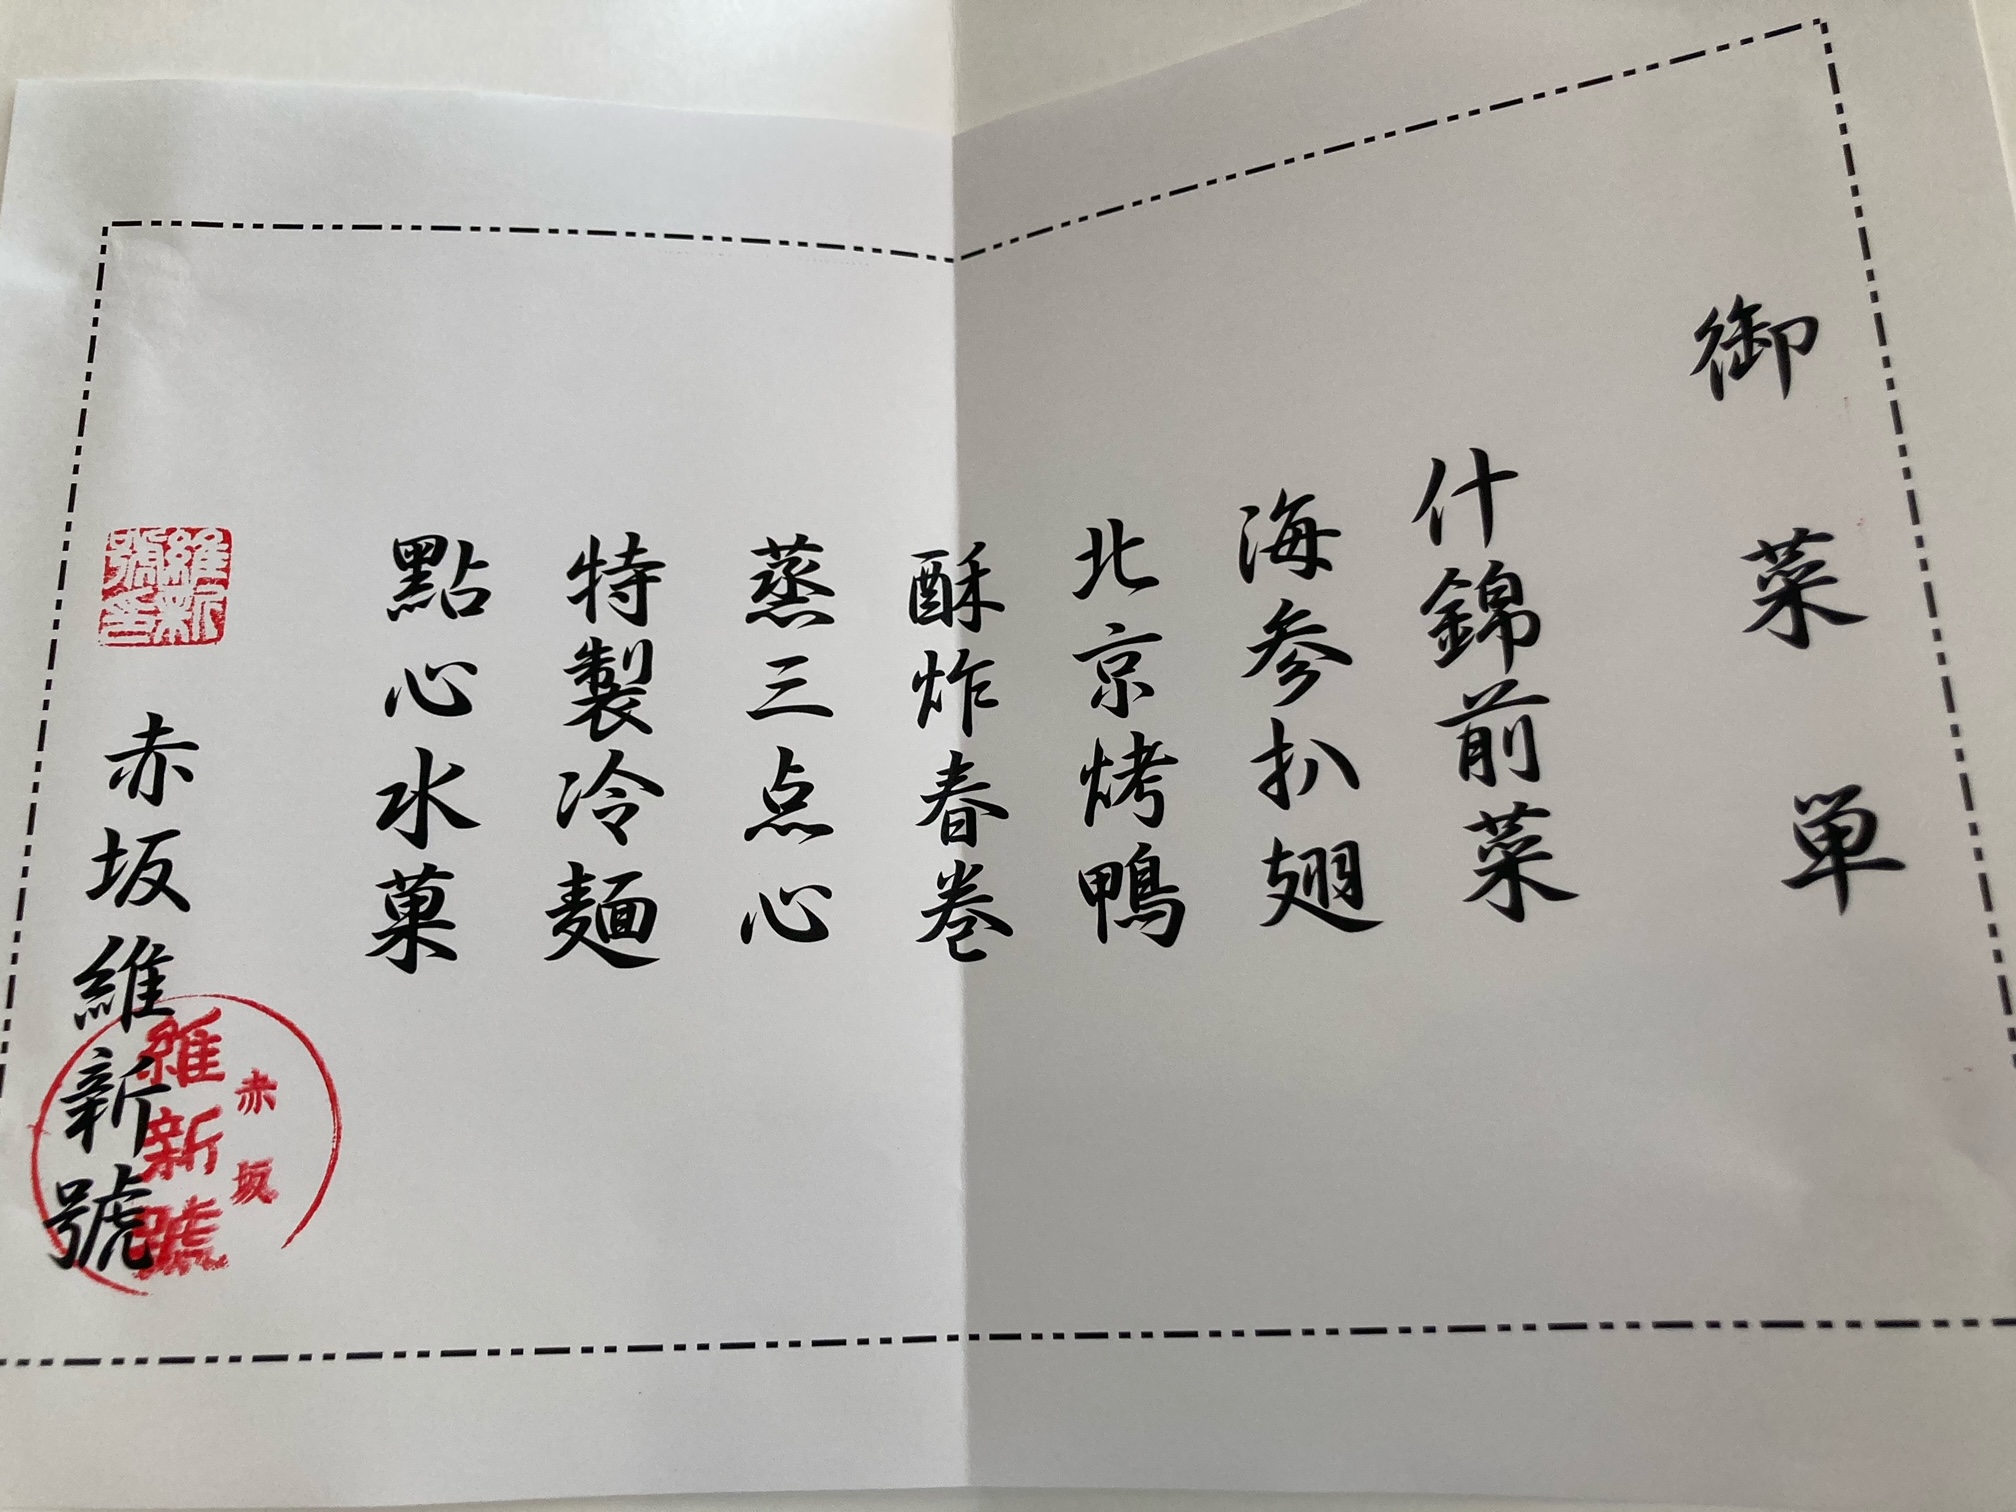 御菜単
什錦前菜
海参扒翅
北京烤鴨
酥炸春巻
蒸三点心
特製冷麺
點心水菓
維新號印
赤坂維新號
赤坂
維新號